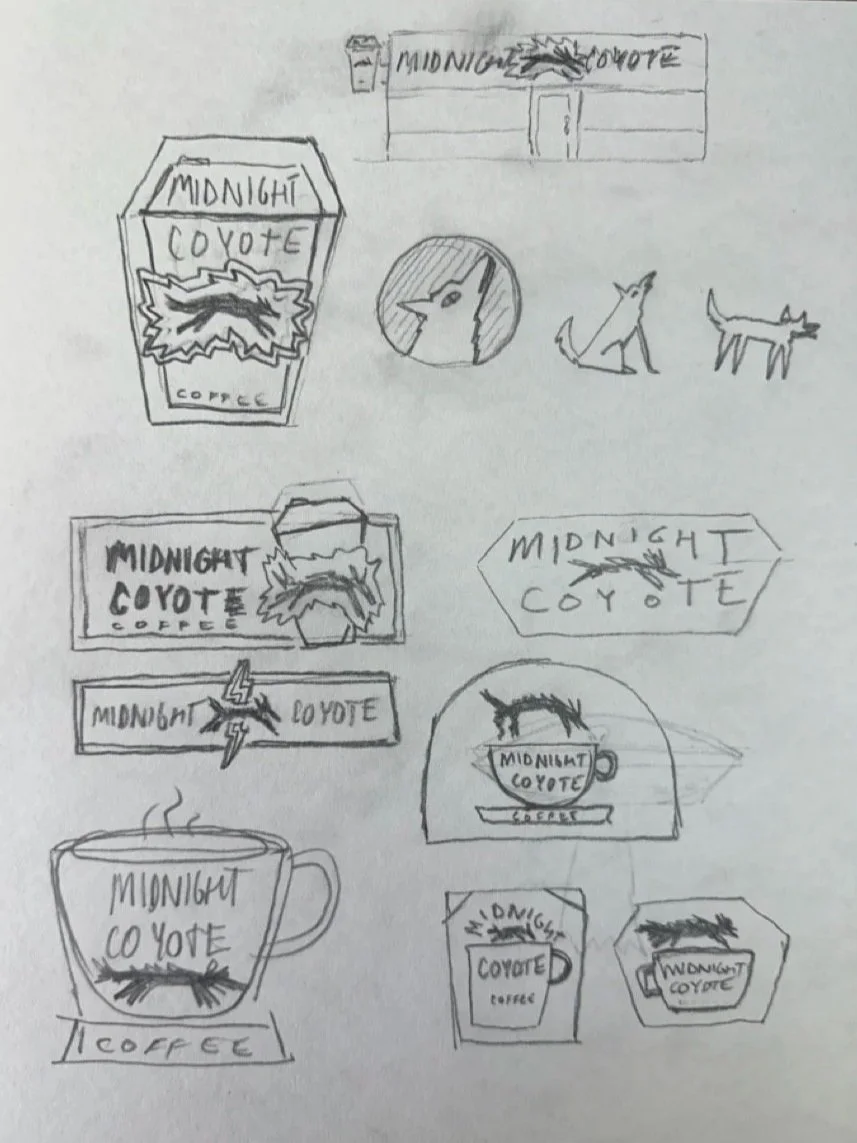 MIDNIGHT COYOTE
MIDNIGHT
COYOTE
COFFEE
MIDNIGHT
COYOTE
COFFEE
MIDNIGHT
COYOTE
MIDNIGHT COYOTE
MIDNIGHT
COYOTE
COFFEE
MIDNIGHT
COYOTE
COFFEE
MIDNIGHT
COYOTE
COFFEE
MIDNIGHT
COYOTE